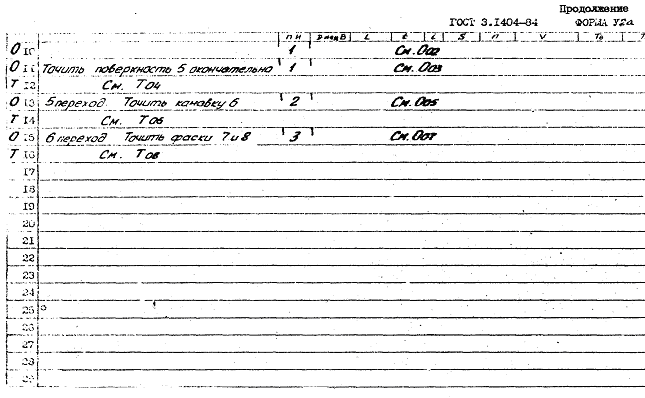 Продолжение
ГОСТ 3.1404—84 ФОРМА У2а
ПИ D или B L t i S п V То Т
О 10 1 См. О02
О 11 Точить поверхность 5 окончательно 1 См. О03
Т 12 См. Т04
О 13 5 переход Точить канавку 6 2 См. О05
Т 14 См. Т06
О 15 6 переход Точить фаски 7 и 8 3 См. О07
Т 16 См. Т08
17
18
19
20
21
22
23
24
25
26
27
28
29